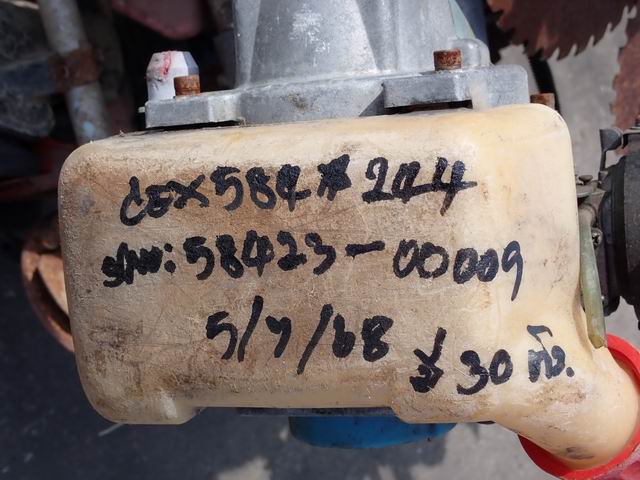 CEX584#244
S/N: 58423-00009
5/7/68 ง 30 กัง.